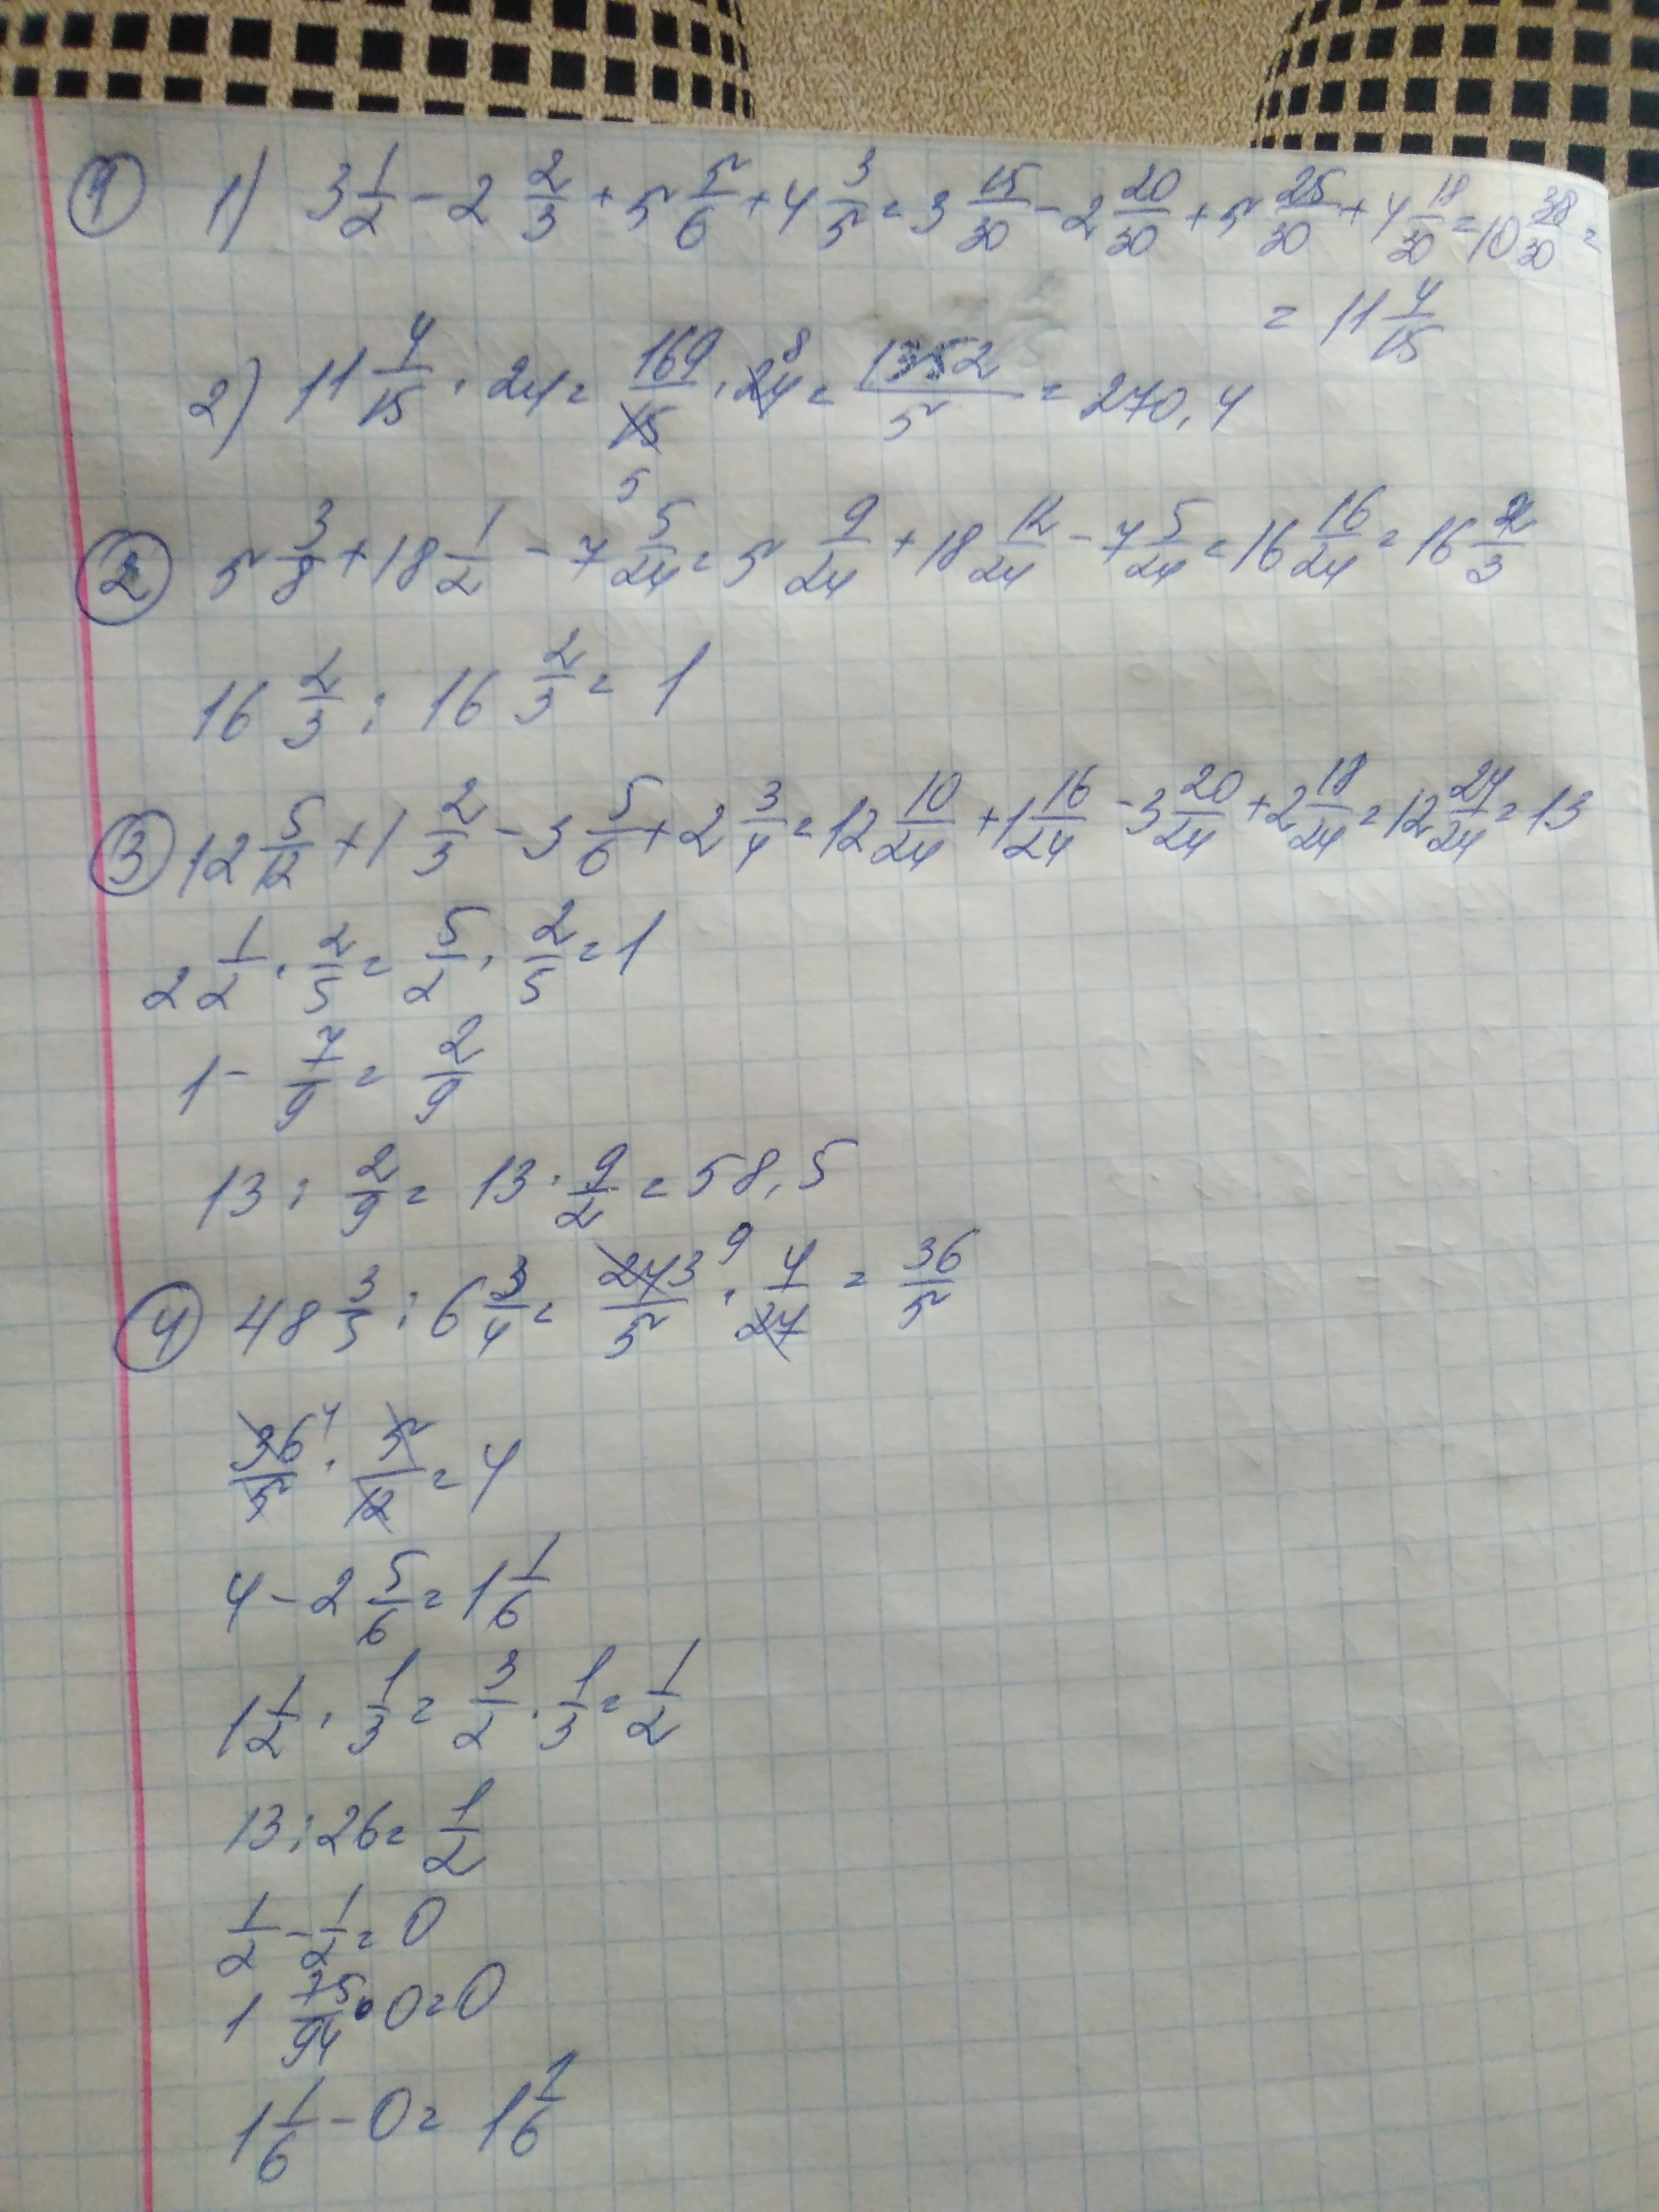 ① 1) 3 1/2 - 2 2/3 + 5 5/6 + 4 3/5 = 3 15/30 - 2 20/30 + 5 25/30 + 4 18/30 = 10 38/30 =
= 11 4/15
2) 11 4/15 · 24 = 169/15 · 24 8 = 1352/5 = 270,4
5
② 5 3/8 + 18 1/2 - 7 5/24 = 5 9/24 + 18 12/24 - 7 5/24 = 16 16/24 = 16 2/3
16 2/3 : 16 2/3 = 1
③ 12 5/12 + 1 2/3 - 3 5/6 + 2 3/4 = 12 10/24 + 1 16/24 - 3 20/24 + 2 18/24 = 12 24/24 = 13
2 1/2 · 2/5 = 5/2 · 2/5 = 1
1 - 7/9 = 2/9
13 : 2/9 = 13 · 9/2 = 58,5
④ 48 3/5 : 6 3/4 = 243/5 9 · 4/27 = 36/5
36/5 4 · 5/12 = 4
4 - 2 5/6 = 1 1/6
1 1/2 · 1/3 = 3/2 · 1/3 = 1/2
13 : 26 = 1/2
1/2 - 1/2 = 0
1 75/94 · 0 = 0
1 1/6 - 0 = 1 1/6